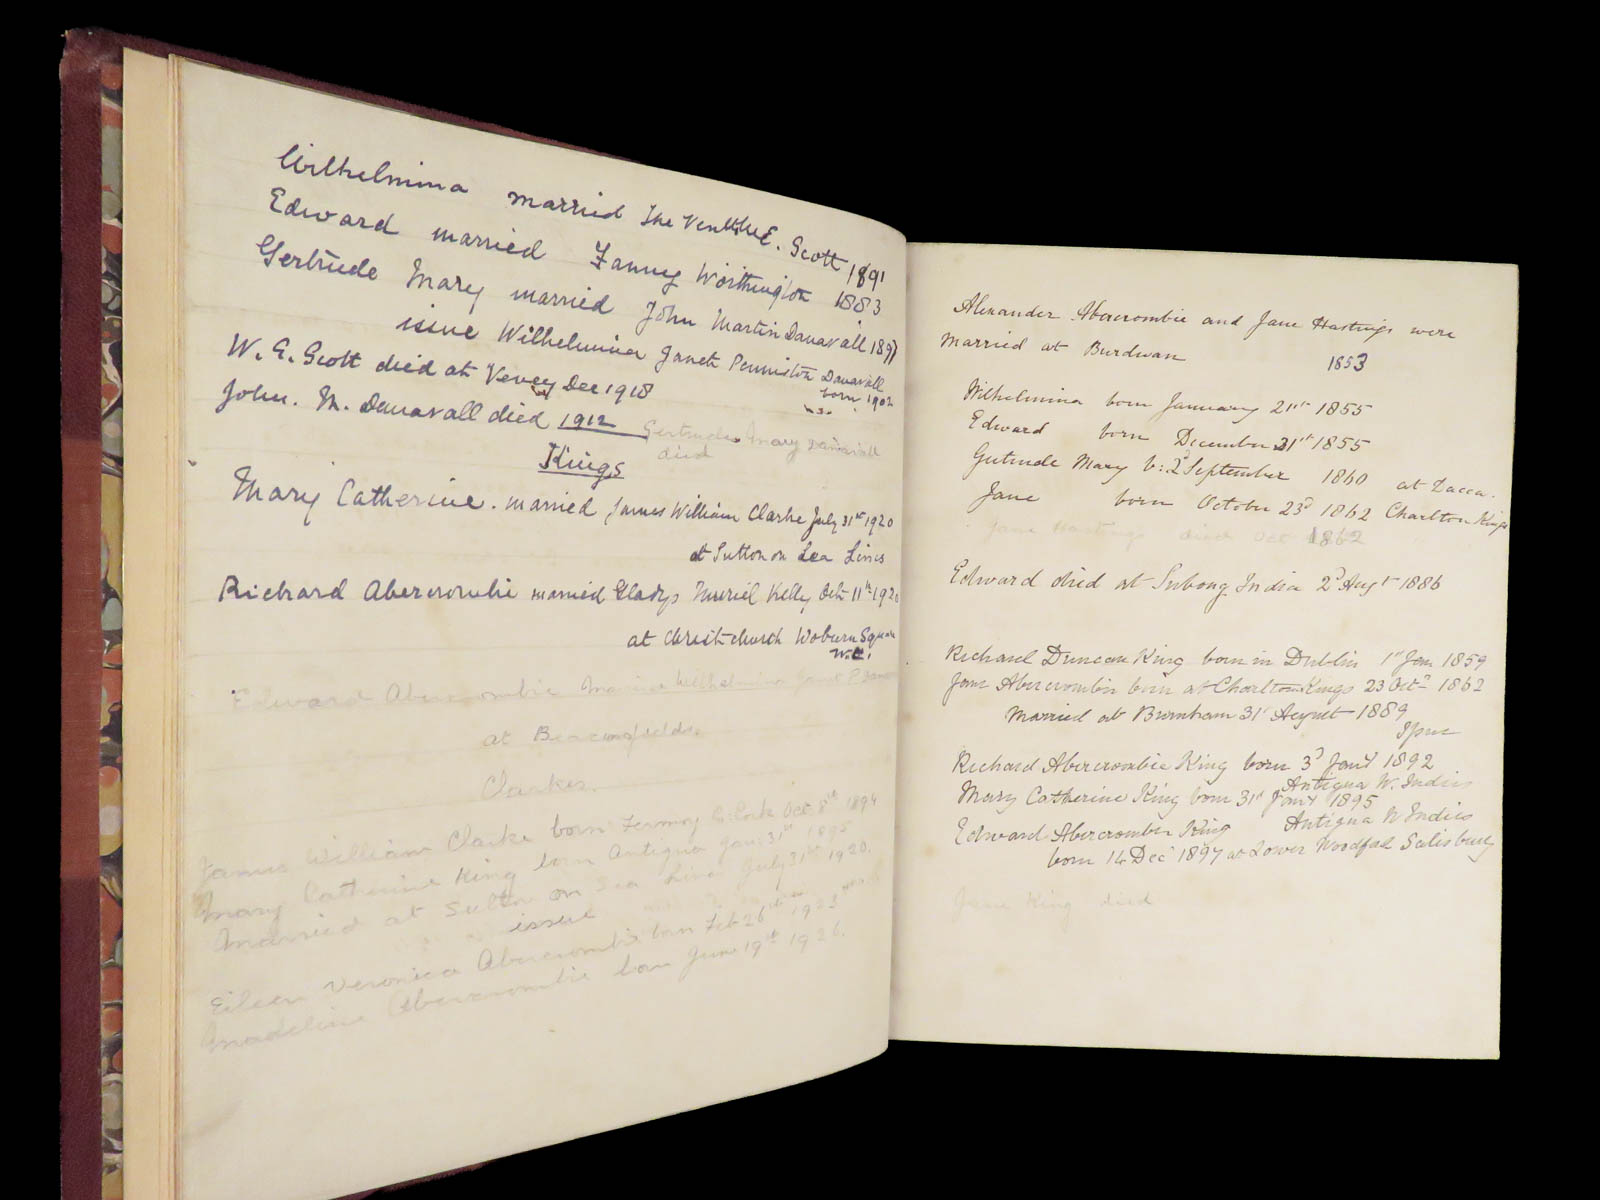 Wilhelmina married The Ven W. E. Scott 1891
Edward married Fanny Worthington 1883
Gertrude Mary married John Martin Danavall 1897
issue Wilhelmina Janet Penniston Danavall
born 1902
W. E. Scott died at Vevey Dec 1918
John. M. Danavall died 1912
Gertrude Mary Danavall
died
Kings
Mary Catherine. married James William Clarke July 31st 1920
at Sutton on Sea Lincs
Richard Abercrombie married Gladys Muriel Kelly Oct 11th 1920
at Christchurch Woburn Square
W.C.
Edward Abercrombie Wilhelmina Janet P.
at Beaconsfield.
Clarkes.
James William Clarke born Fermoy Co. Cork Oct 8th 1894
Mary Catherine King born Antigua Jan: 31st 1895
Married at Sutton on Sea Lincs July 31st 1920.
issue
Eileen Veronica Abercrombie born Feb 26th 1923
Madeline Abercrombie born June 19th 1926.
Alexander Abercrombie and Jane Hastings were
Married at Burdwan 1853
Wilhelmina born January 21st 1855
Edward born December 31st 1855
Gertrude Mary b: 2d September 1860 at Dacca.
Jane born October 23d 1862 Charlton Kings
Jane Hastings died Oct 1862
Edward died at Subong India 2d Augst 1886
Richard Duncan King born in Dublin 1st Jan 1859
Jane Abercrombie born at Charlton Kings 23 Octr 1862
Married at Burnham 31st August 1889
Issue
Richard Abercrombie King born 3d Jany 1892
Antigua W. Indies
Mary Catherine King born 31st Jany 1895
Antigua W Indies
Edward Abercrombie King
born 14 Dec 1897 at Lower Woodford Salisbury
Jane King died